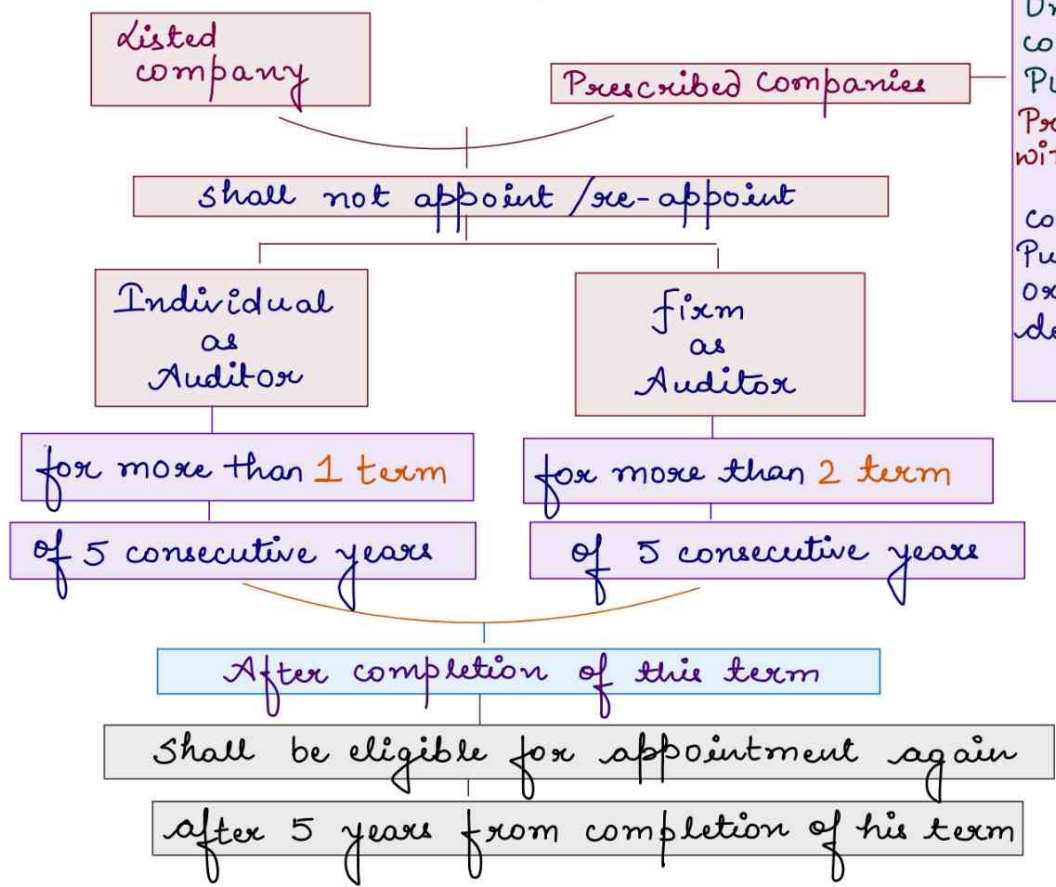 Listed
company
Prescribed Companies
shall not appoint /re-appoint
Individual
as
Auditor
firm
as
Auditor
for more than 1 term
of 5 consecutive years
for more than 2 term
of 5 consecutive years
After completion of this term
shall be eligible for appointment again
after 5 years from completion of his term